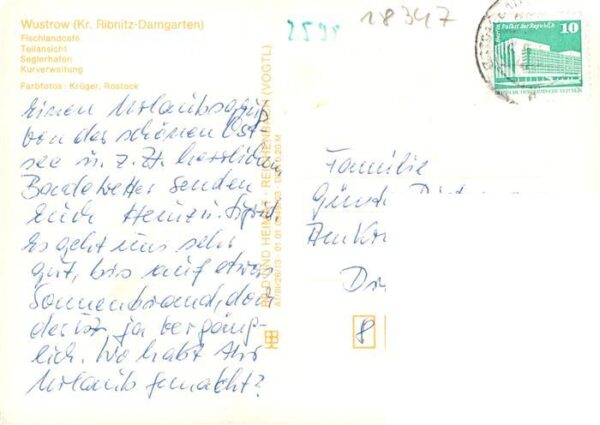 Wustrow (Kr. Ribnitz-Damgarten)
Fischlandcafé
Teilansicht
Seglerhafen
Kurverwaltung
Farbfotos: Krüger, Rostock
2598
18347
10
Palast der Republik
Einen Urlaubsgruß
von der schönen Ost-
see u. z. Zt. herrlichem
Badewetter senden
Euch Heinz u. Sigrid.
Es geht uns sehr
gut, bis auf etwas
Sonnenbrand, doch
der ist ja vergäng-
lich. Wo habt Ihr
Urlaub gemacht?
BILD UND HEIMAT REICHENBACH (VOGTL)
Familie
8